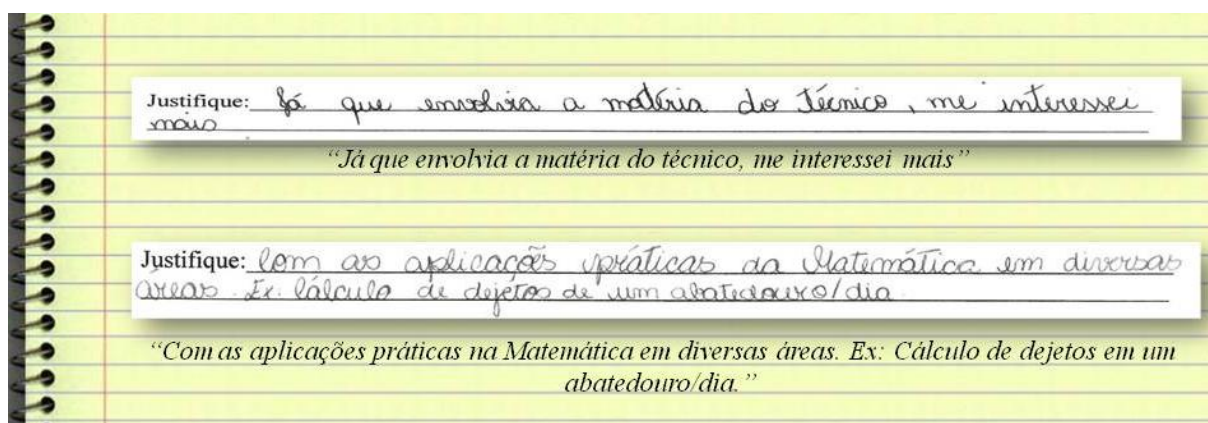 Justifique: Já que envolvia a matéria do Técnico, me interessei
mais
“Já que envolvia a matéria do técnico, me interessei mais”
Justifique: Com as aplicações práticas da Matemática em diversas
áreas. Ex. Cálculo de dejetos de um abatedouro/dia
“Com as aplicações práticas na Matemática em diversas áreas. Ex: Cálculo de dejetos em um
abatedouro/dia.”